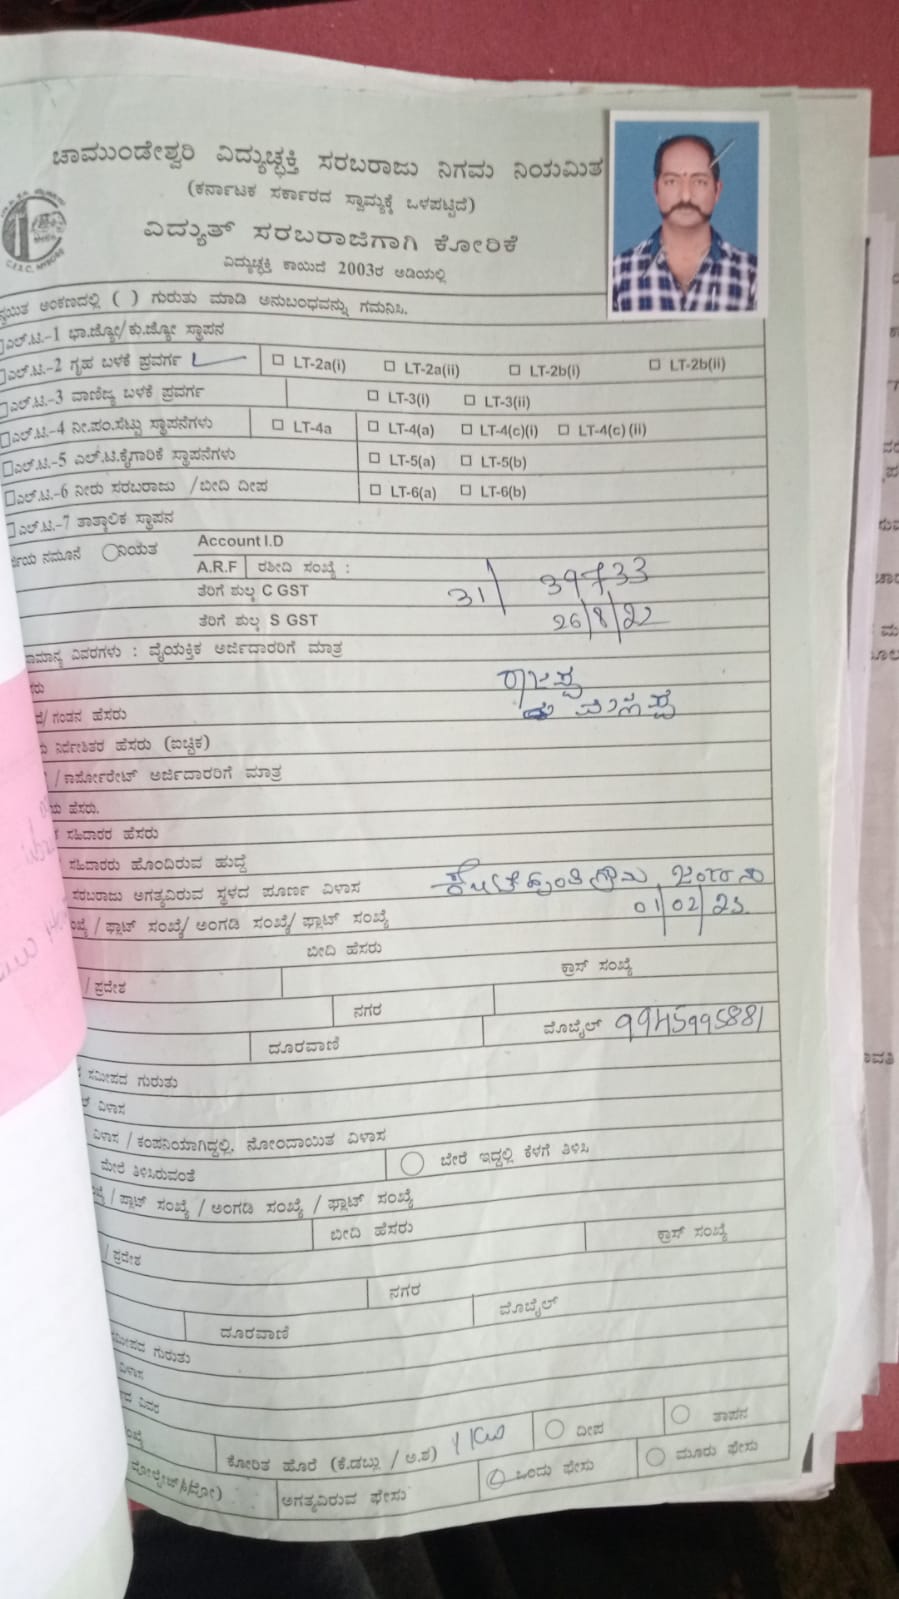 ಚಾಮುಂಡೇಶ್ವರಿ ವಿದ್ಯುಚ್ಛಕ್ತಿ ಸರಬರಾಜು ನಿಗಮ ನಿಯಮಿತ
(ಕರ್ನಾಟಕ ಸರ್ಕಾರದ ಸ್ವಾಮ್ಯಕ್ಕೆ ಒಳಪಟ್ಟಿದೆ)
ವಿದ್ಯುತ್ ಸರಬರಾಜಿಗಾಗಿ ಕೋರಿಕೆ
ವಿದ್ಯುಚ್ಛಕ್ತಿ ಕಾಯಿದೆ 2003ರ ಅಡಿಯಲ್ಲಿ
ಅಂಕಣದಲ್ಲಿ ( ) ಗುರುತು ಮಾಡಿ ಅನುಬಂಧವನ್ನು ಗಮನಿಸಿ.
ಎಲ್.ಟಿ.-1 ಭಾ.ಜ್ಯೋ/ಕು.ಜ್ಯೋ ಸ್ಥಾಪನ
ಎಲ್.ಟಿ.-2 ಗೃಹ ಬಳಕೆ ಪ್ರವರ್ಗ LT-2a(i) LT-2a(ii) LT-2b(i) LT-2b(ii)
ಎಲ್.ಟಿ.-3 ವಾಣಿಜ್ಯ ಬಳಕೆ ಪ್ರವರ್ಗ LT-3(i) LT-3(ii)
ಎಲ್.ಟಿ.-4 ನೀ.ಪಂ.ಸೆಟ್ಟು ಸ್ಥಾಪನೆಗಳು LT-4a LT-4(a) LT-4(c)(i) LT-4(c)(ii)
ಎಲ್.ಟಿ.-5 ಎಲ್.ಟಿ.ಕೈಗಾರಿಕೆ ಸ್ಥಾಪನೆಗಳು LT-5(a) LT-5(b)
ಎಲ್.ಟಿ.-6 ನೀರು ಸರಬರಾಜು /ಬೀದಿ ದೀಪ LT-6(a) LT-6(b)
ಎಲ್.ಟಿ.-7 ತಾತ್ಕಾಲಿಕ ಸ್ಥಾಪನ
ನಮೂನೆ ನಿಯತ Account I.D
A.R.F ರಶೀದಿ ಸಂಖ್ಯೆ :
ತೆರಿಗೆ ಶುಲ್ಕ C GST 31/ 39733
ತೆರಿಗೆ ಶುಲ್ಕ S GST 26/8/22
ವಿವರಗಳು : ವೈಯಕ್ತಿಕ ಅರ್ಜಿದಾರರಿಗೆ ಮಾತ್ರ
/ಗಂಡನ ಹೆಸರು
ನಿರ್ದೇಶಿತರ ಹೆಸರು (ಐಚ್ಛಿಕ)
/ ಕಾರ್ಪೋರೇಟ್ ಅರ್ಜಿದಾರರಿಗೆ ಮಾತ್ರ
ಹೆಸರು.
ಸಹಿದಾರರ ಹೆಸರು
ಸಹಿದಾರರು ಹೊಂದಿರುವ ಹುದ್ದೆ
ಸರಬರಾಜು ಅಗತ್ಯವಿರುವ ಸ್ಥಳದ ಪೂರ್ಣ ವಿಳಾಸ
/ ಪ್ಲಾಟ್ ಸಂಖ್ಯೆ/ ಅಂಗಡಿ ಸಂಖ್ಯೆ/ ಫ್ಲಾಟ್ ಸಂಖ್ಯೆ 01/02/23
ಬೀದಿ ಹೆಸರು
/ ಪ್ರದೇಶ ಕ್ರಾಸ್ ಸಂಖ್ಯೆ
ನಗರ
ದೂರವಾಣಿ ಮೊಬೈಲ್ 9945995881
ಸಮೀಪದ ಗುರುತು
ವಿಳಾಸ
ವಿಳಾಸ / ಕಂಪನಿಯಾಗಿದ್ದಲ್ಲಿ. ನೋಂದಾಯಿತ ವಿಳಾಸ
ಮೇಲೆ ತಿಳಿಸಿರುವಂತೆ ಬೇರೆ ಇದ್ದಲ್ಲಿ ಕೆಳಗೆ ತಿಳಿಸಿ
/ ಪ್ಲಾಟ್ ಸಂಖ್ಯೆ / ಅಂಗಡಿ ಸಂಖ್ಯೆ / ಫ್ಲಾಟ್ ಸಂಖ್ಯೆ
ಬೀದಿ ಹೆಸರು ಕ್ರಾಸ್ ಸಂಖ್ಯೆ
/ ಪ್ರದೇಶ
ನಗರ
ದೂರವಾಣಿ ಮೊಬೈಲ್
ಗುರುತು
ವಿಳಾಸ
ವಿವರ
ಕೋರಿತ ಹೊರೆ (ಕೆ.ಡಬ್ಲು / ಅ.ಶ) 1 KW ದೀಪ ತಾಪನ
ಅಗತ್ಯವಿರುವ ಫೇಸು ಒಂದು ಫೇಸು ಮೂರು ಫೇಸು